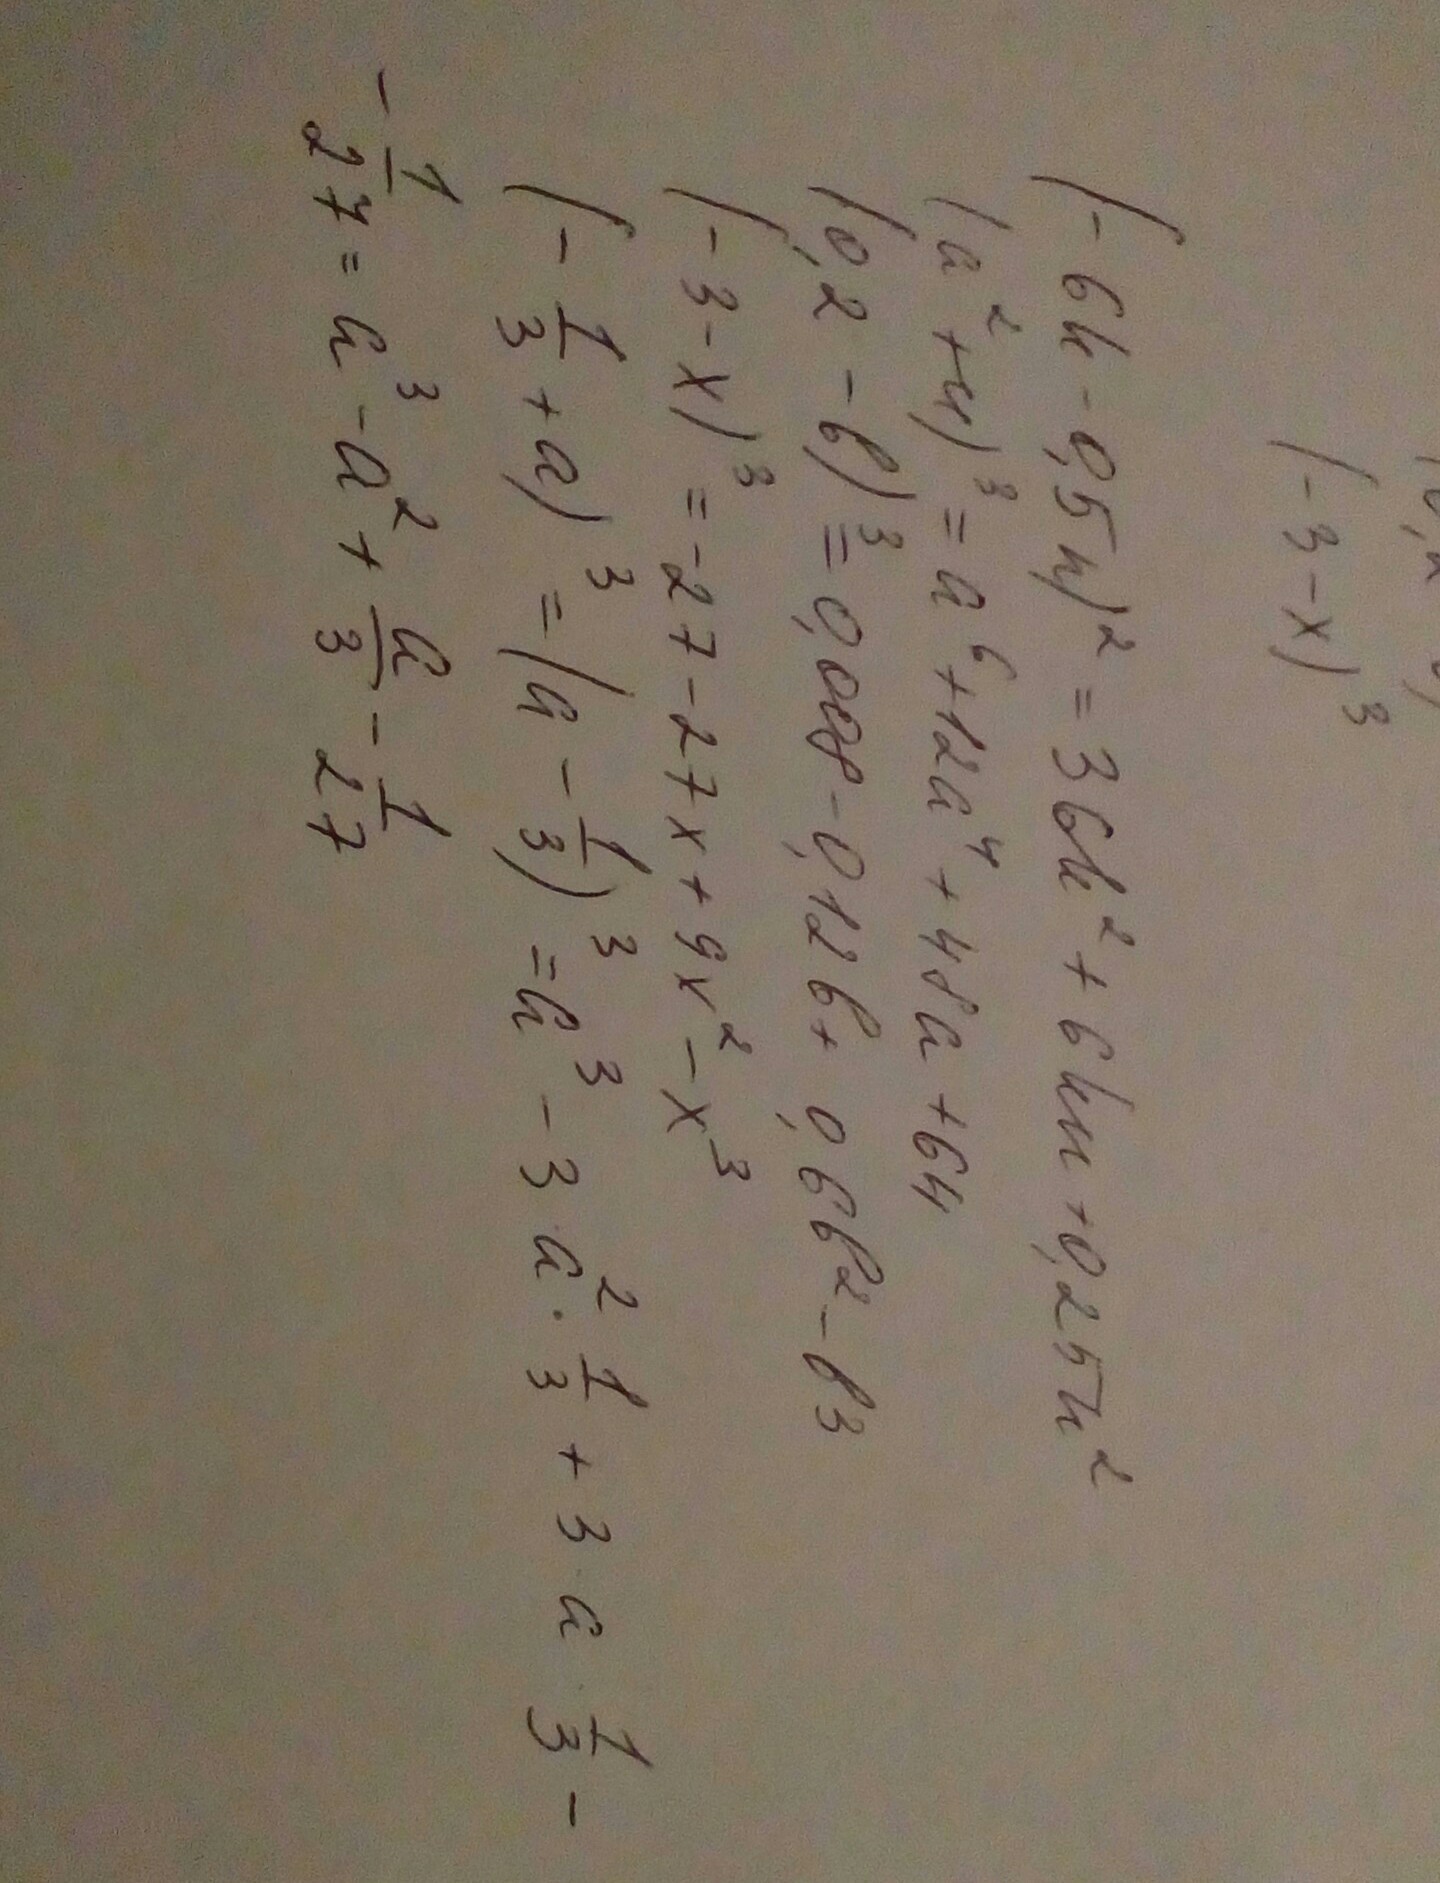 (-3-x)³
(-6k-0,5n)² = 36k² + 6kn + 0,25n²
(a² + 4)³ = a⁶ + 12a⁴ + 48a + 64
(0,2 - b)³ = 0,008 - 0,12b + 0,6b² - b3
(-3-x)³ = -27-27x + 9x² - x³
(-1/3 + a)³ = (a - 1/3)³ = a³ - 3a² · 1/3 + 3 a · 1/3 -
-1/27 = a³ - a² + a/3 - 1/27